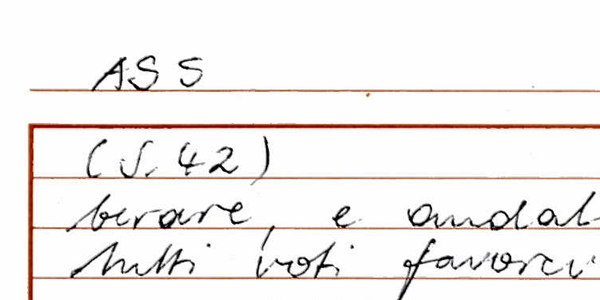 ASS
(S. 42)
berare, e andat
tutti voti favorev